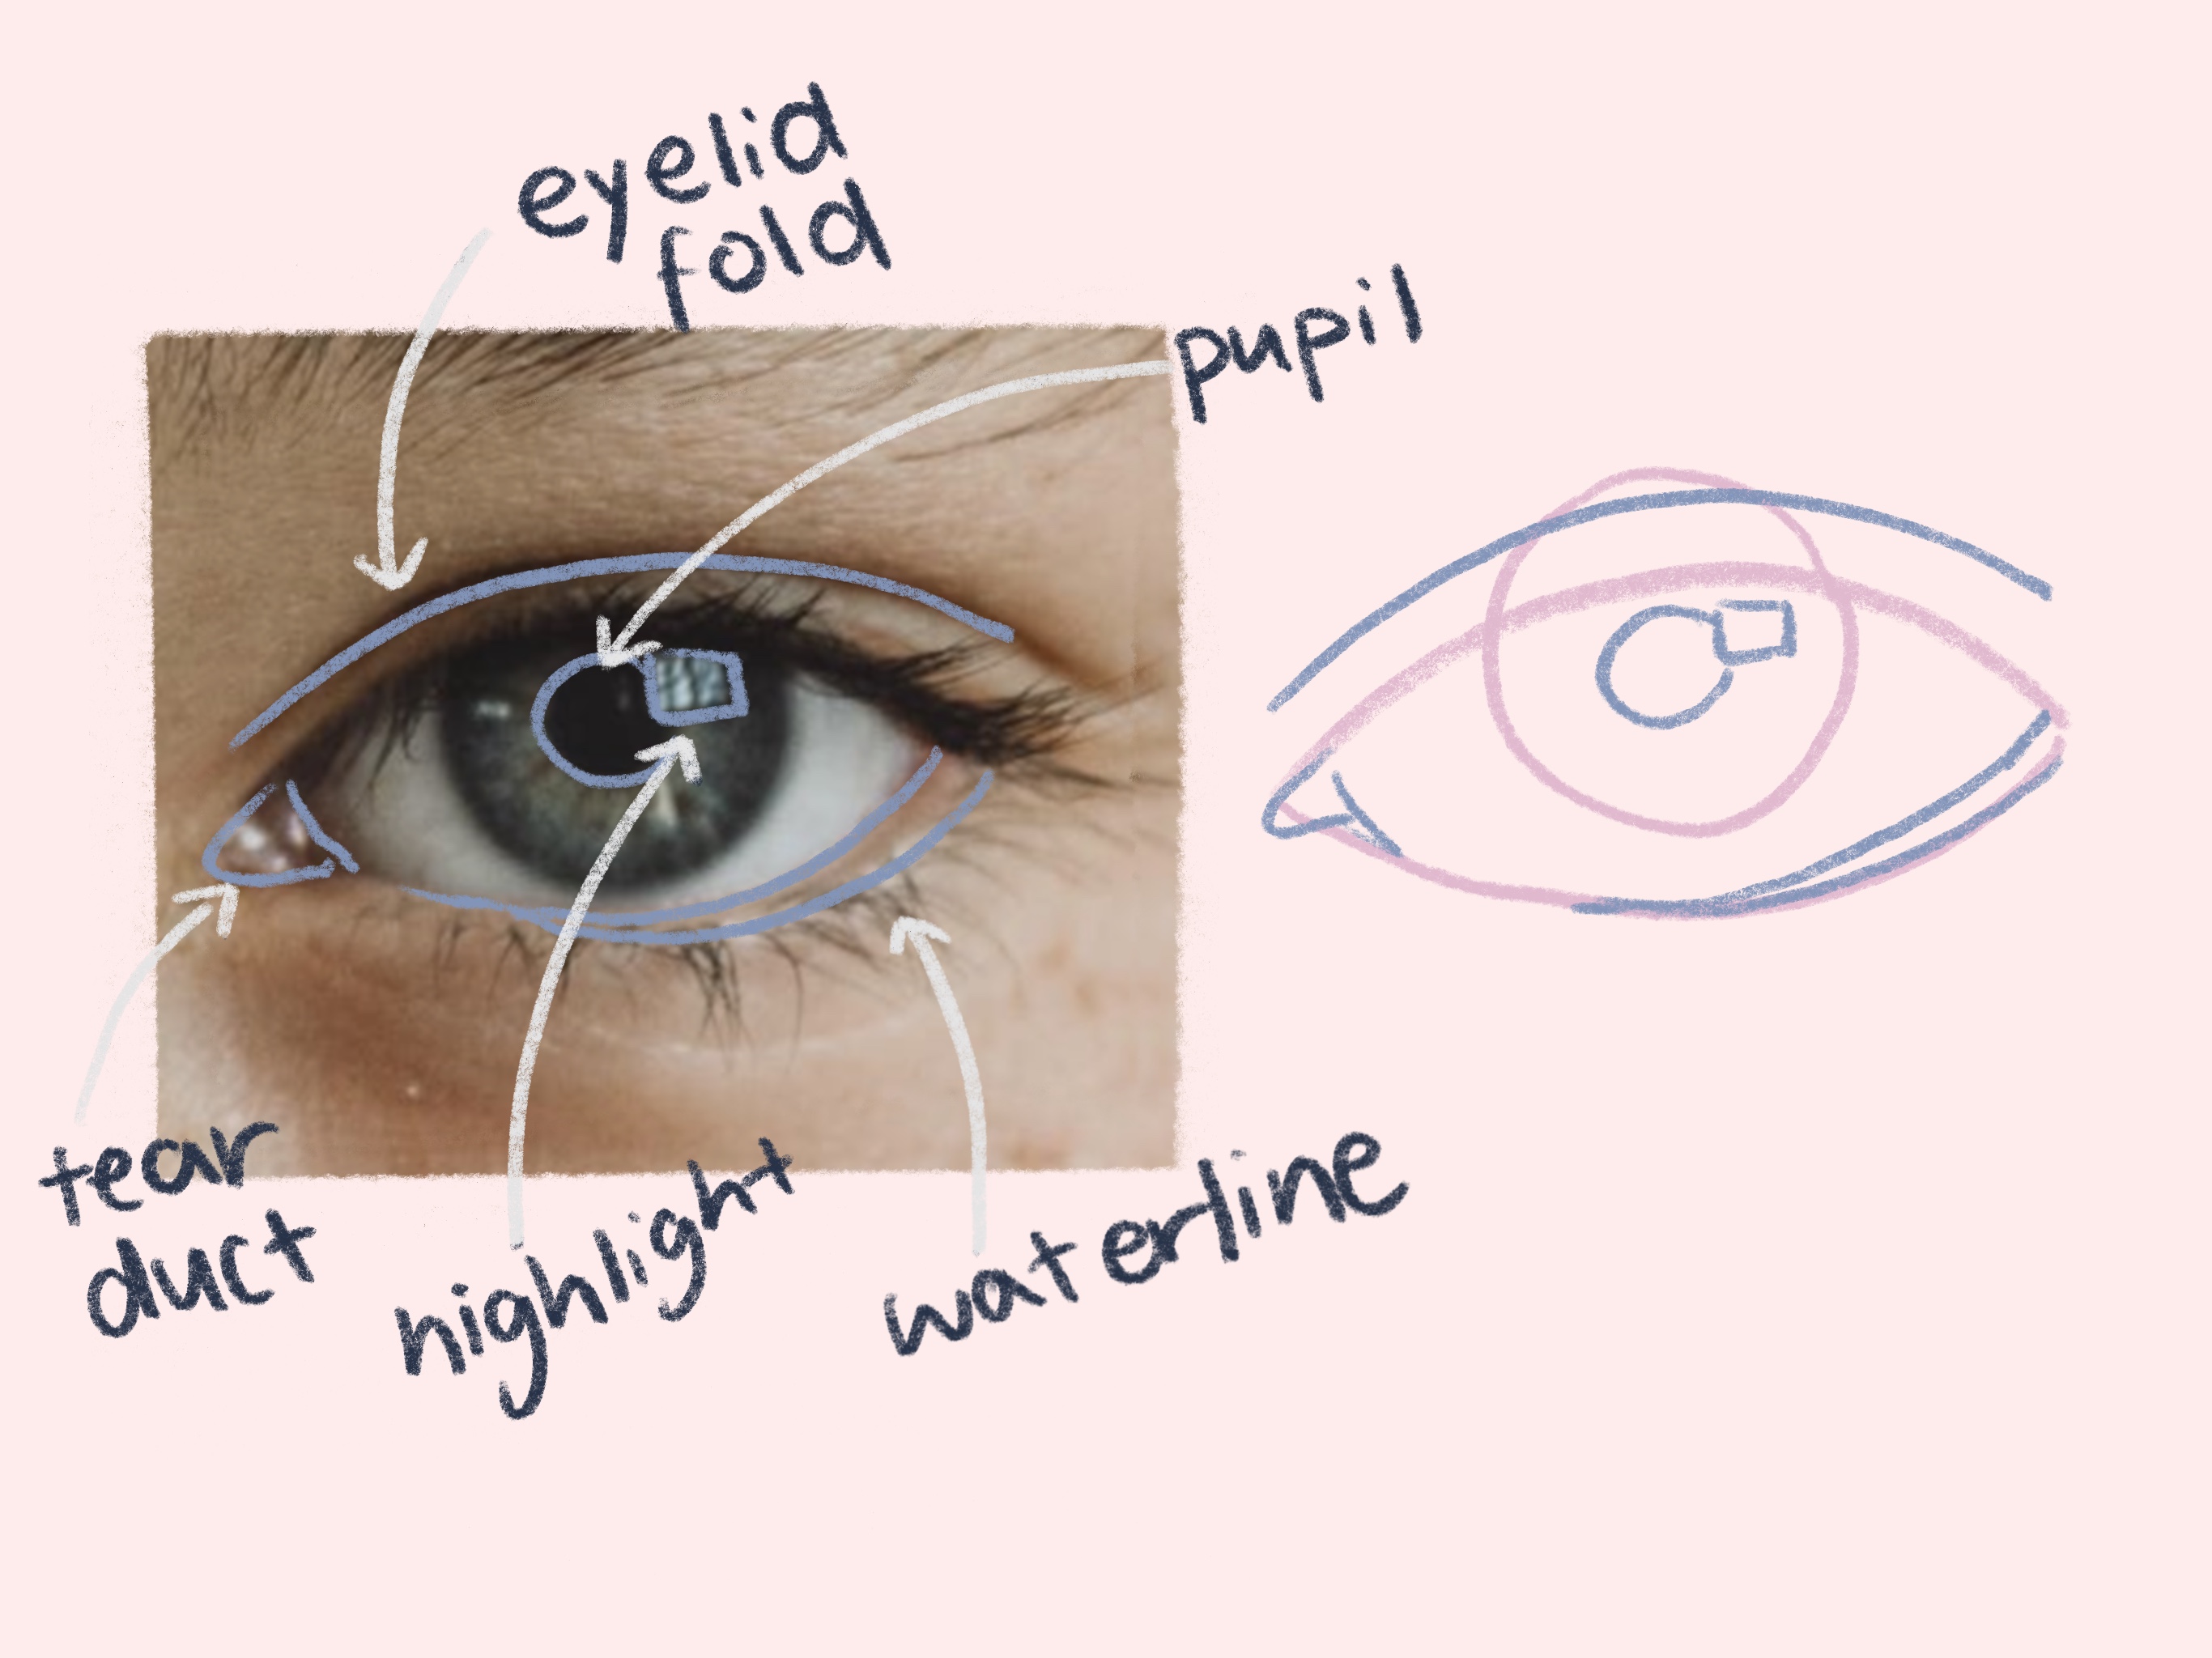 eyelid
fold
pupil
tear
duct
highlight
waterline